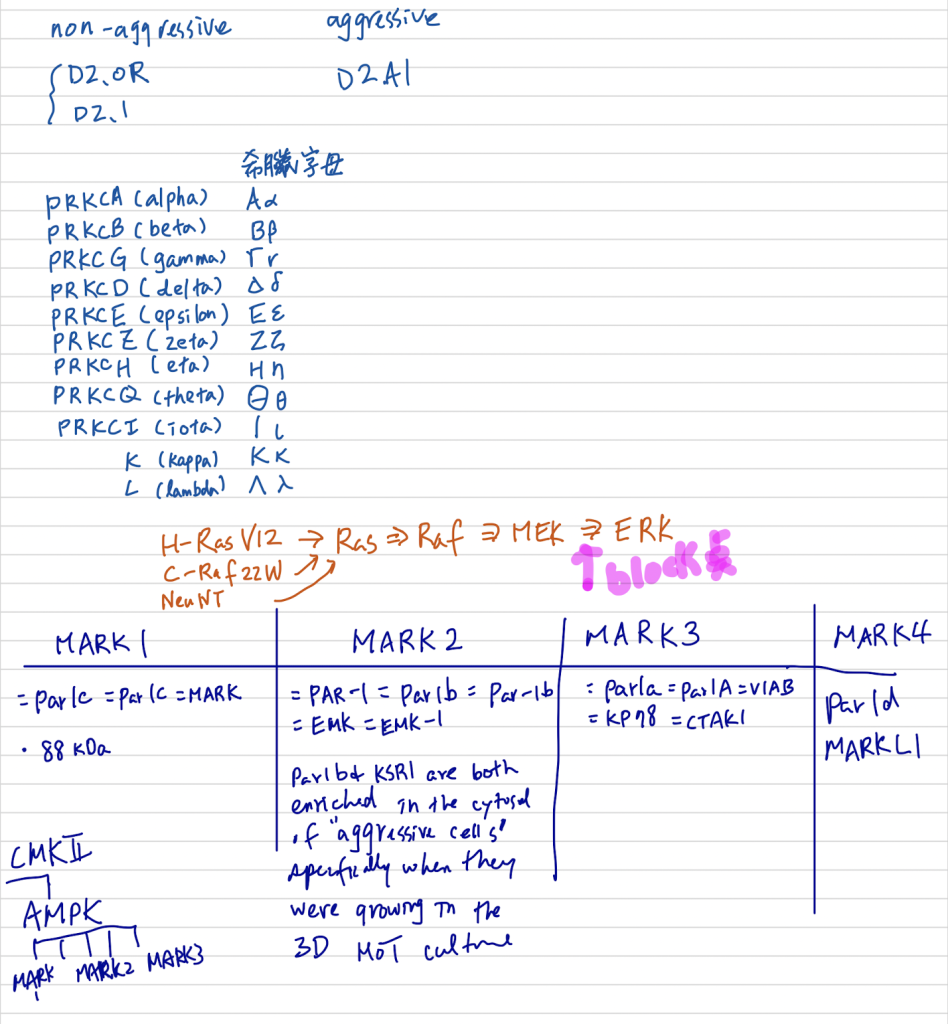 non-aggressive aggressive
D2.OR D2A1
D2.1
希臘字母
PRKCA (alpha) Αα
PRKCB (beta) Ββ
PRKCG (gamma) Γr
PRKCD (delta) Δδ
PRKCE (epsilon) Εε
PRKCZ (zeta) Ζζ
PRKCH (eta) Ηη
PRKCQ (theta) Θθ
PRKCI (iota) Ιι
K (kappa) Κκ
L (lambda) Λλ
H-Ras V12 → Ras ⇒ Raf ⇒ MEK ⇒ ERK
C-Raf 22W
NeuNT
↑ block!
MARK 1
= Par1c = Par1C = MARK
· 88 kDa
MARK 2
= PAR-1 = Par1b = Par-1b
= EMK = EMK-1
Par1b & KSR1 are both
enriched in the cytosol
of "aggressive cells"
specifically when they
were growing in the
3D MOT culture
MARK3
= Par1a = Par1A = V1AB
= KP78 = CTAK1
MARK4
Par1d
MARKL1
CMKII
AMPK
MARK1 MARK2 MARK3